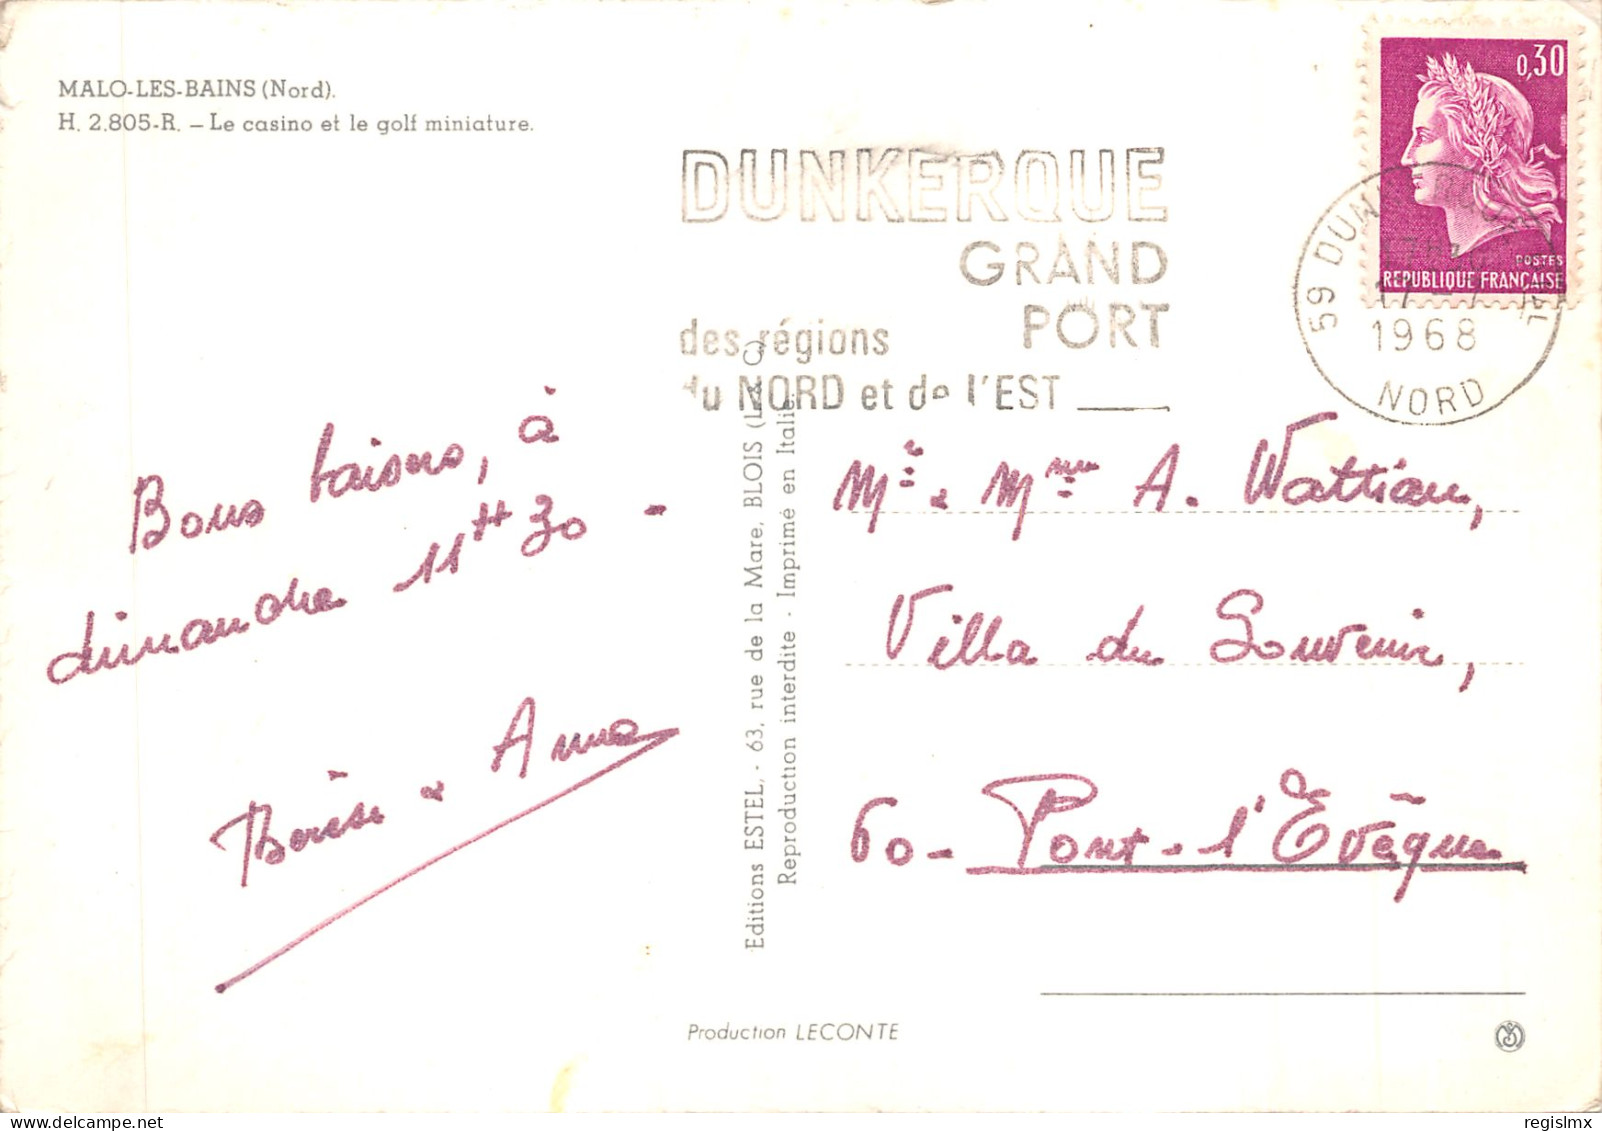 MALO-LES-BAINS (Nord).
H. 2.805-R. – Le casino et le golf miniature.
DUNKERQUE
GRAND
PORT
des régions
du NORD et de l'EST
0,30
POSTES
REPUBLIQUE FRANÇAISE
59 DUNKERQUE
17
1968
NORD
Bons baisers, à
dimanche 11H30 -
Thérèse & Anna
Editions ESTEL. - 63, rue de la Mare, BLOIS (L. & C.)
Reproduction interdite - Imprimé en Italie.
Mr & Mme A. Wattiau,
Villa du Souvenir,
60- Pont-l'Évêque
Production LECONTE
regislmx